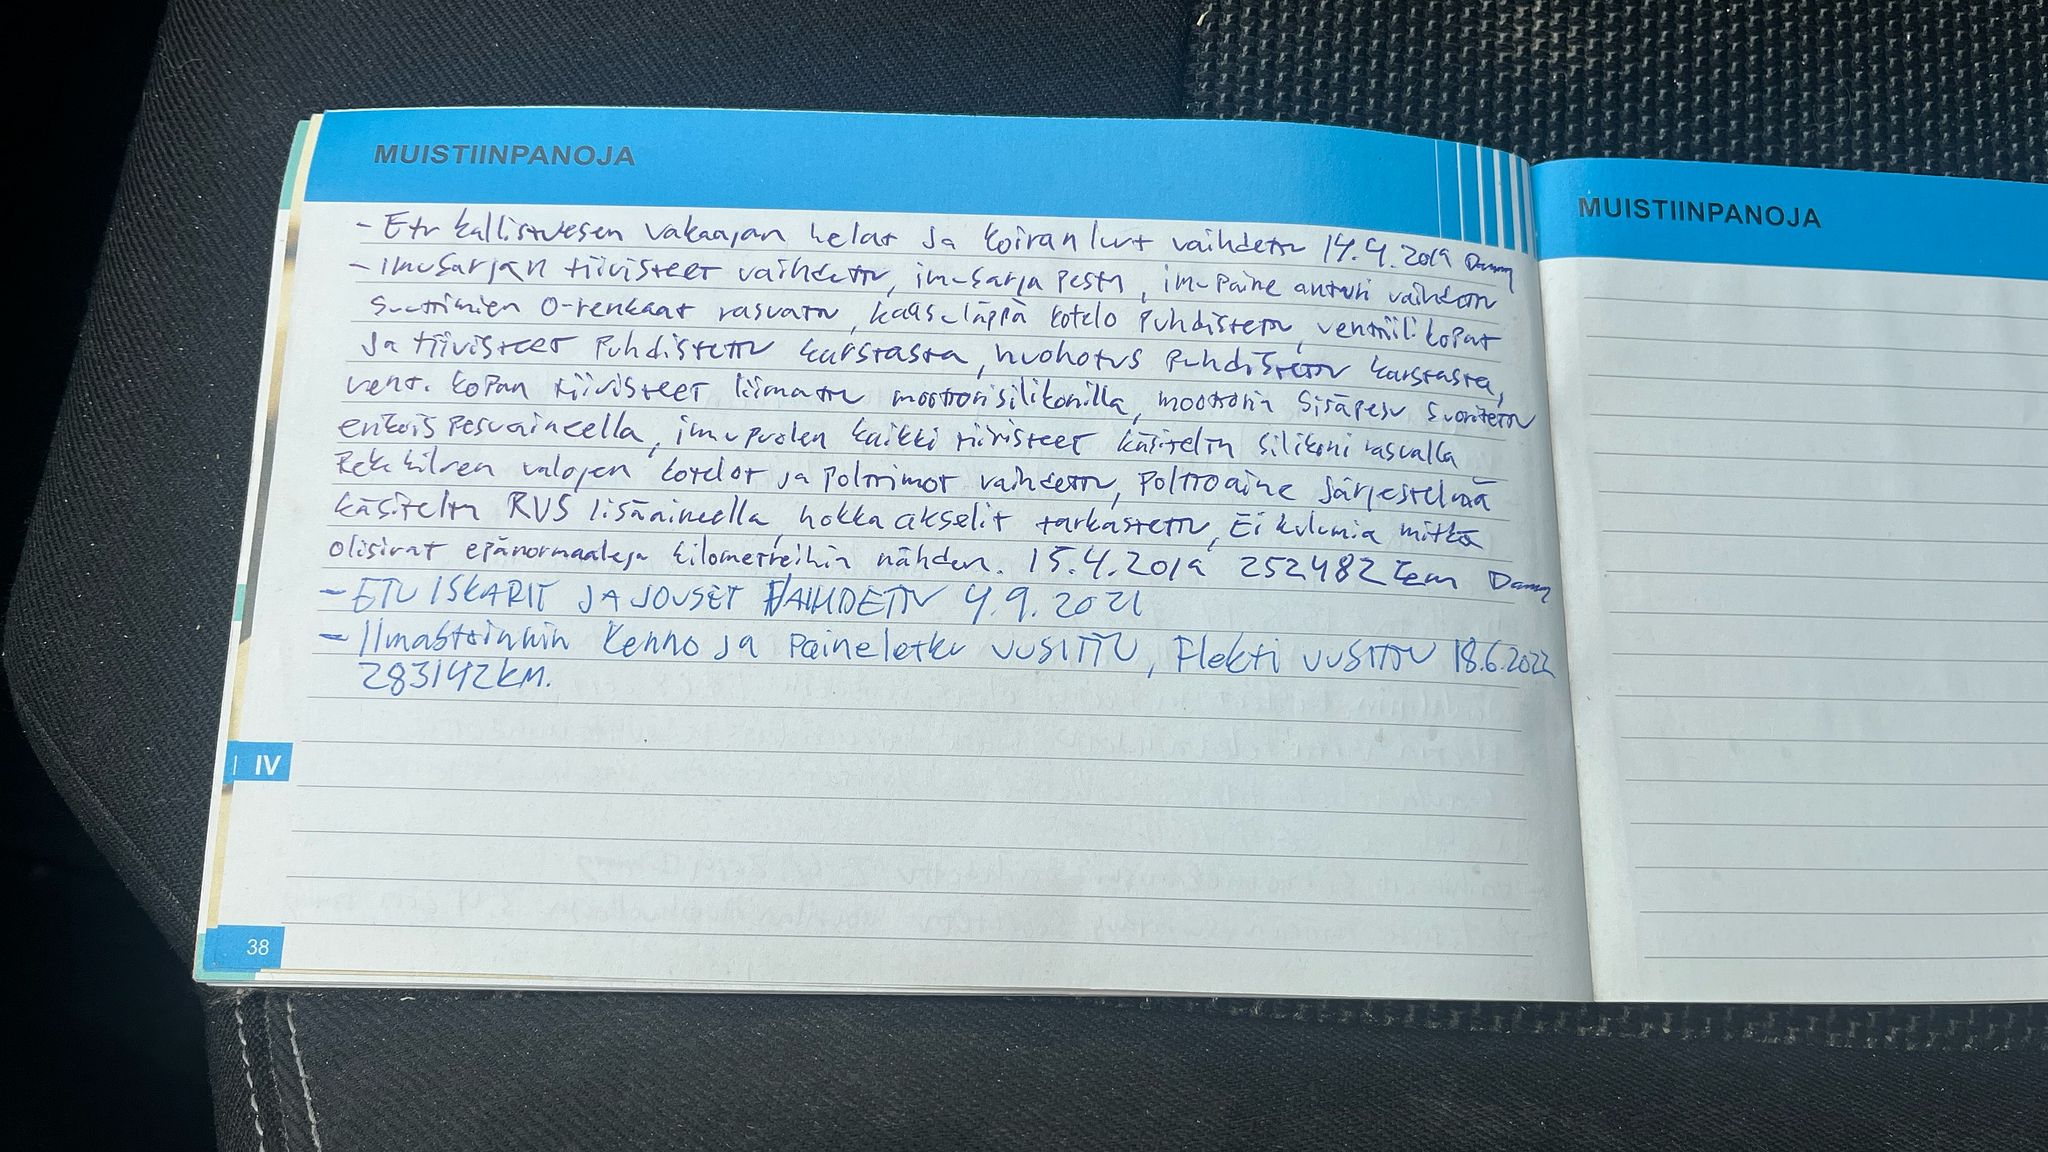 MUISTIINPANOJA
- Etu kallistuksen vakaajan helat ja koiran luut vaihdettu 14.4.2019 Danny
- imusarjan tiivisteet vaihdettu, imusarja pestu, imupaine anturi vaihdettu
suuttimien O-renkaat rasvattu, kaasuläppä kotelo puhdistettu, venttiili kopat
ja tiivisteet puhdistettu karstasta, huohotus puhdistettu karstasta,
vent. kopan tiivisteet liimattu moottorisilikonilla, moottorin sisäpesu suoritettu
erikois pesuaineella, imupuolen kaikki tiivisteet käsitelty silikoni rasvalla
Rekkilven valojen kotelot ja polttimot vaihdettu, Polttoaine järjestelmä
käsitelty RVS lisäaineella, nokka akselit tarkastettu, Ei kulumia mitkä
olisivat epänormaaleja kilometreihin nähden. 15.4.2019 252482 km Danny
- ETU ISKARIT JA JOUSET VAIHDETTU 4.9.2021
- Ilmastoinnin kenno ja paineletku UUSITTU, Flekti UUSITTU 18.6.2022
283142KM.
IV
38
MUISTIINPANOJA